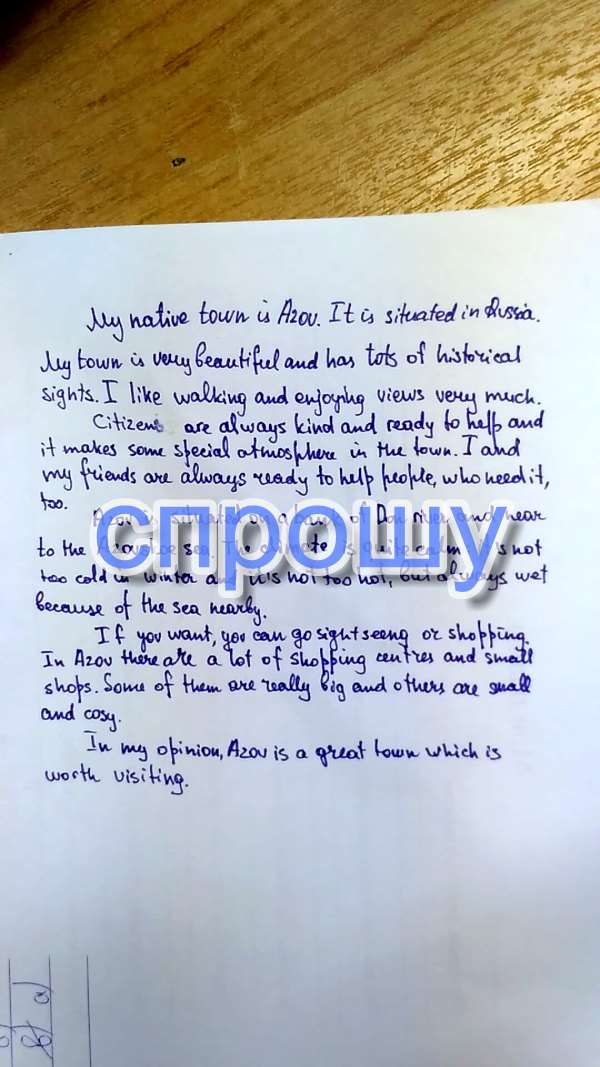 My native town is Azov. It is situated in Russia.
My town is very beautiful and has lots of historical
sights. I like walking and enjoying views very much.
Citizens are always kind and ready to help and
it makes some special atmosphere in the town. I and
my friends are always ready to help people, who need it,
too.
Azov is situated on a bank of Don river and near
спрошу
to the sea. The climate is quite calm. It is not
too cold in winter and it is not too hot, but always wet
because of the sea nearby.
If you want, you can go sightseeng or shopping.
In Azov there are a lot of shopping centres and small
shops. Some of them are really big and others are small
and cosy.
In my opinion, Azov is a great town which is
worth visiting.
a)